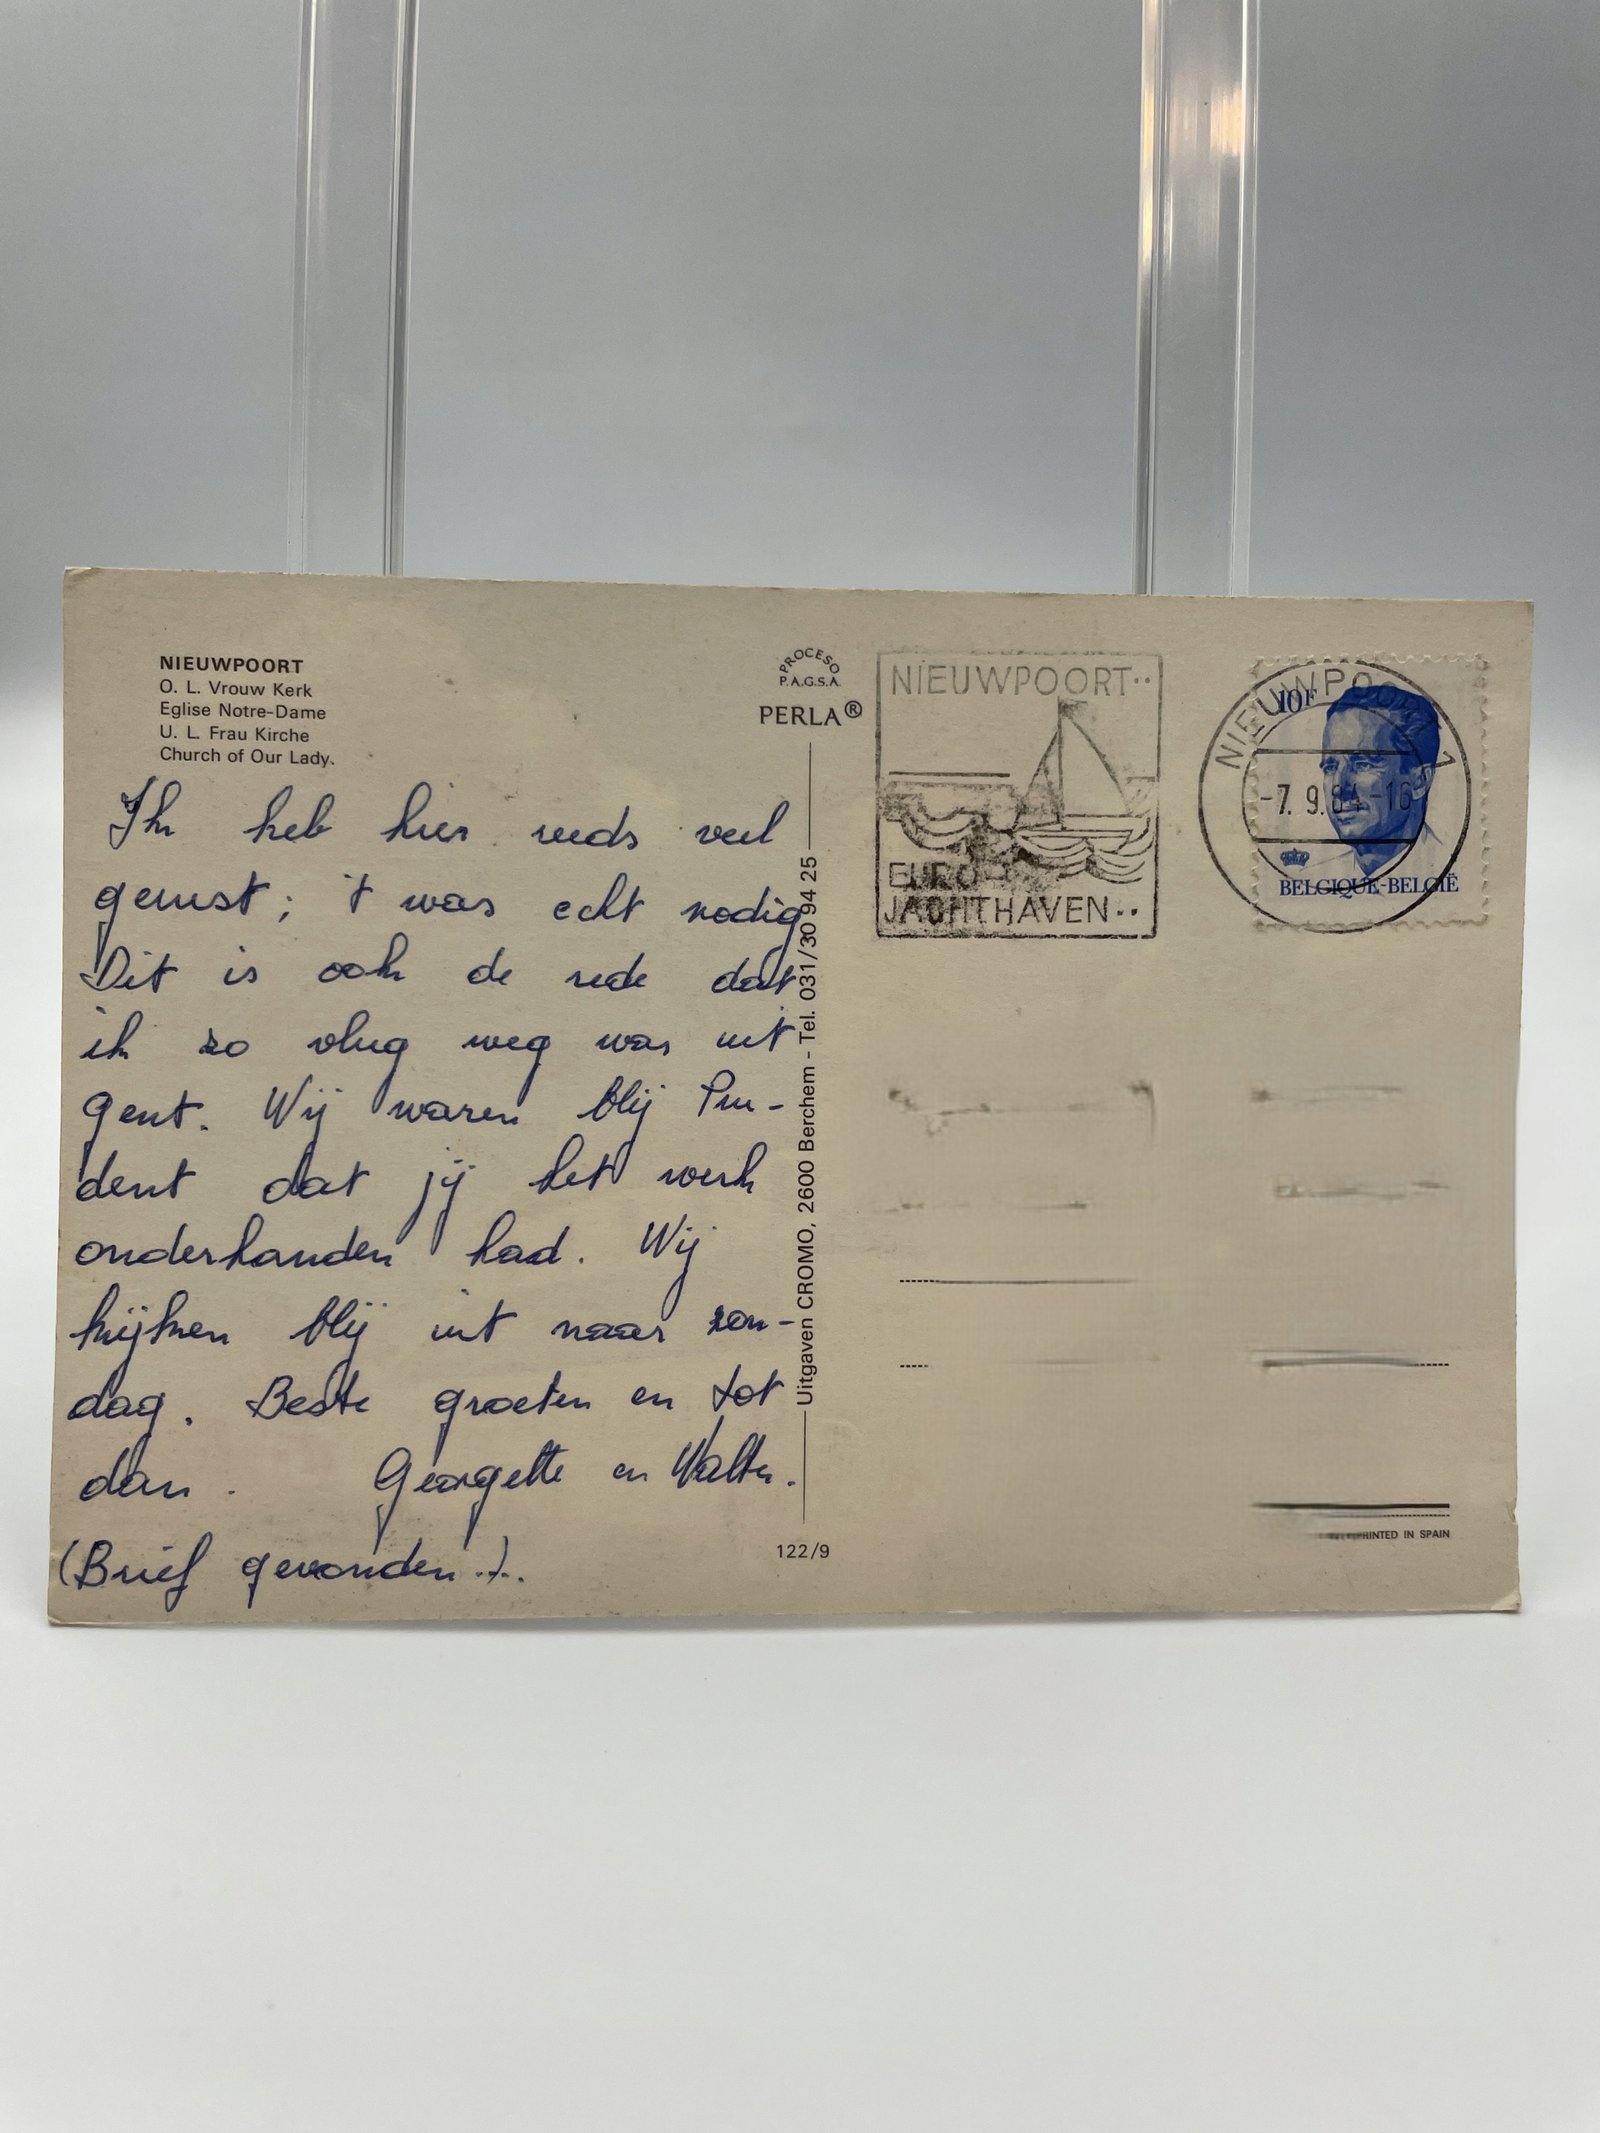 NIEUWPOORT
O. L. Vrouw Kerk
Eglise Notre-Dame
U. L. Frau Kirche
Church of Our Lady.
Ik heb hier reeds veel
gerust; 't was echt nodig
Dit is ook de rede dat
ik zo vlug weg was uit
Gent. Wij waren blij Pru-
dent dat jij het werk
onderhanden had. Wij
kijken blij uit naar zon-
dag. Beste groeten en tot
dan. Georgette en Walter.
(Brief gevonden..).
PROCESO
P.A.G.S.A.
PERLA®
Uitgaven CROMO, 2600 Berchem - Tel. 031/30 94 25
122/9
NIEUWPOORT..
EURO-
JACHTHAVEN..
NIEUWPOORT 1
-7. 9.84-16
10F
BELGIQUE-BELGIË
PRINTED IN SPAIN